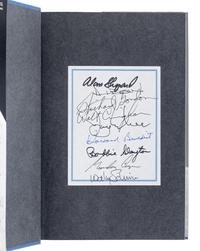 Alan Shepard
Richard Gordon
Walt Cunningham
Howard Benedict
Bobbie Slayton
Gordon Cooper
Wally Schirra